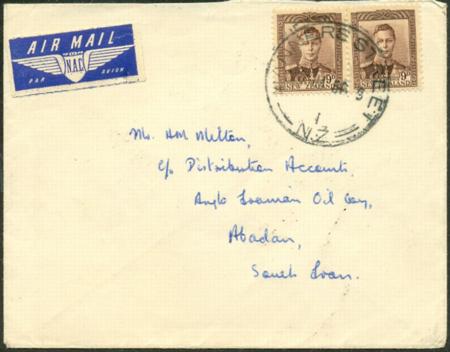 AIR MAIL
N.A.C.
PAR AVION
NEW ZEALAND
N.Z.
Mr. HM Mitton,
c/o Distribution Accounts,
Anglo Iranian Oil Coy,
Abadan,
South Iran.